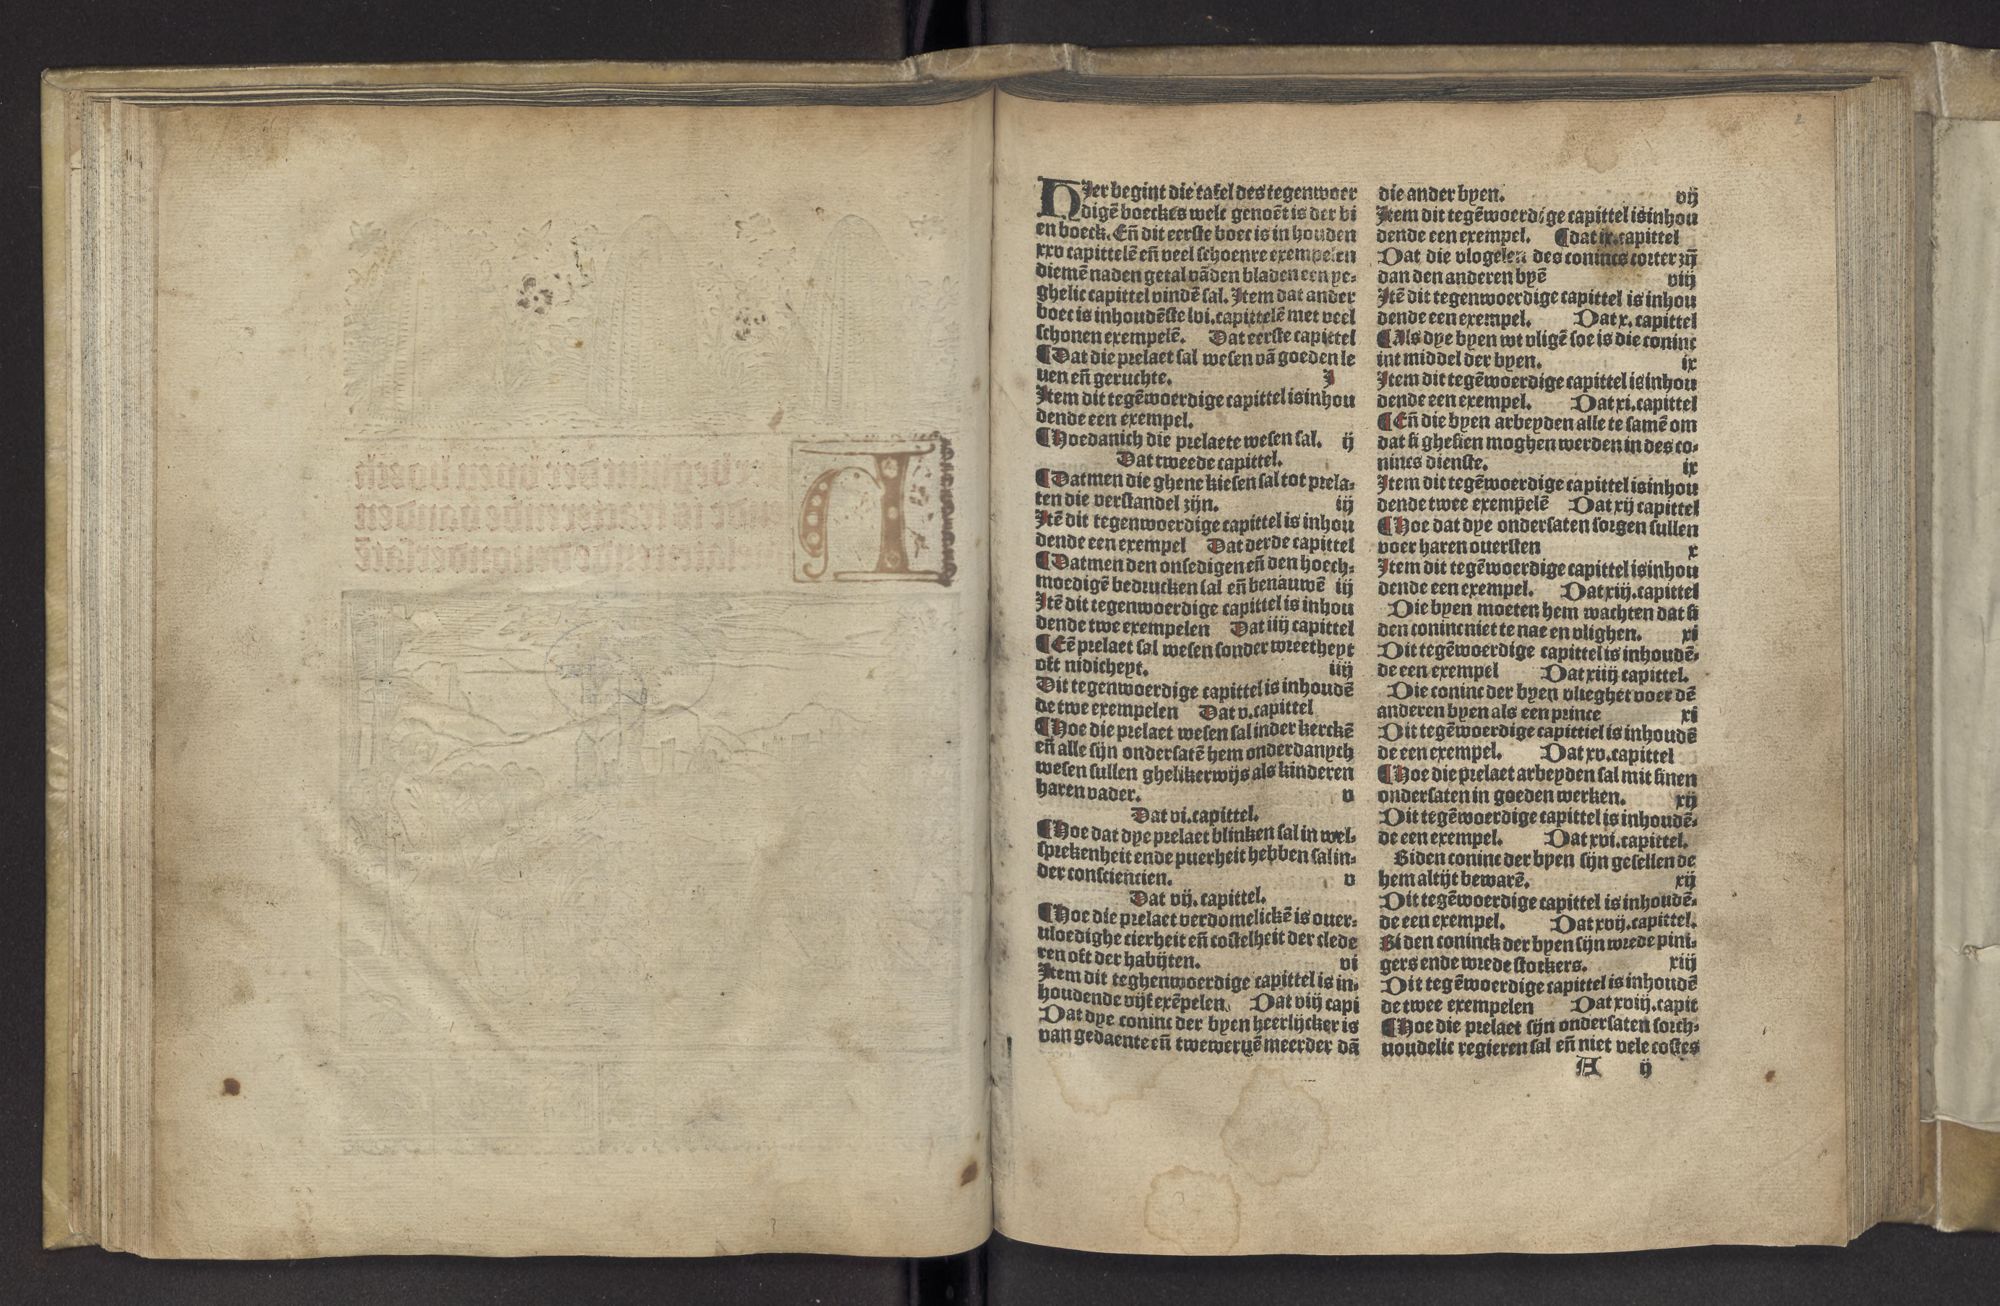 2
Hier begint die tafel des tegenwoer
digē boeckes welc genoēt is der bi
en boeck. Eñ dit eerste boec is in houden
xxv capittelē eñ veel schoenre exempelen
diemē naden getal vāden bladen een ye-
ghelic capittel vindē sal. Item dat ander
boec is inhoudēste lvi. capittelē met veel
schonen exempelē. Dat eerste capittel
¶Dat die prelaet sal wesen vā goeden le
uen eñ geruchte. I
Item dit tegēwoerdige capittel is inhou
dende een exempel.
¶Hoedanich die prelaete wesen sal. ij
Dat tweede capittel.
¶Datmen die ghene kiesen sal tot prela-
ten die verstandel zijn. iij
Itē dit tegenwoerdige capittel is inhou
dende een exempel Dat derde capittel
¶Datmen den onsedigen eñ den hoech-
moedigē bedrucken sal eñ benauwē iij
Itē dit tegenwoerdige capittel is inhou
dende twe exempelen Dat iiij capittel
¶Eē prelaet sal wesen sonder wreetheyt
oft nidicheyt. iiij
Dit tegenwoerdige capittel is inhoudē
de twe exempelen Dat v. capittel
¶Hoe die prelaet wesen sal inder kerckē
eñ alle sijn ondersatē hem onderdanych
wesen sullen ghelikerwijs als kinderen
haren vader. v
Dat vi. capittel.
¶Hoe dat dye prelaet blinken sal in wel-
sprekenheit ende puerheit hebben sal in-
der consciencien. v
Dat vij. capittel.
¶Hoe die prelaet verdomelickē is ouer-
uloedighe cierheit eñ costelheit der clede
ren oft der habijten. vi
Item dit teghenwoerdige capittel is in-
houdende vijf exēpelen. Dat viij capi
Dat dye coninc der byen heerlijcker is
van gedaente eñ tweweruē meerder dā
die ander byen. vij
Item dit tegēwoerdige capittel is inhou
dende een exempel. ¶dat ix. capittel
Dat die vlogelen des conincs corter zij
dan den anderen byē viij
Itē dit tegenwoerdige capittel is inhou
dende een exempel. Dat x. capittel
¶Als dye byen wt vligē soe is die coninc
int middel der byen. ix
Item dit tegēwoerdige capittel is inhou
dende een exempel. Dat xi. capittel
¶Eñ die byen arbeyden alle te samē om
dat si ghesien moghen werden in des co-
nincs dienste. ix
Item dit tegēwoerdige capittel is inhou
dende twee exempelē Dat xij capittel
¶Hoe dat dye ondersaten sorgen sullen
voer haren ouersten x
Item dit tegēwoerdige capittel is inhou
dende een exempel. Dat xiij. capittel
Die byen moeten hem wachten dat si
den coninc niet te nae en vlighen. xi
Dit tegēwoerdige capittel is inhoudē-
de een exempel Dat xiiij capittel.
Die coninc der byen vlieghet voer dē
anderen byen als een prince xi
Dit tegēwoerdige capittiel is inhoudē
de een exempel. Dat xv. capittel
¶Hoe die prelaet arbeyden sal mit sinen
ondersaten in goeden werken. xij
Dit tegēwoerdige capittel is inhoudē-
de een exempel. Dat xvi. capittel.
Biden coninc der byen sijn gesellen de
hem altijt bewarē. xij
Dit tegēwoerdige capittel is inhoudē-
de een exempel. Dat xvij. capittel.
Bi den coninck der byen sijn wrede pini-
gers ende wrede stockers. xiij
Dit tegēwoerdige capittel is inhoudē
de twee exempelen Dat xviij. capit
¶Hoe die prelaet sijn ondersaten sorch-
uoudelic regieren sal eñ niet vele costes
A ij